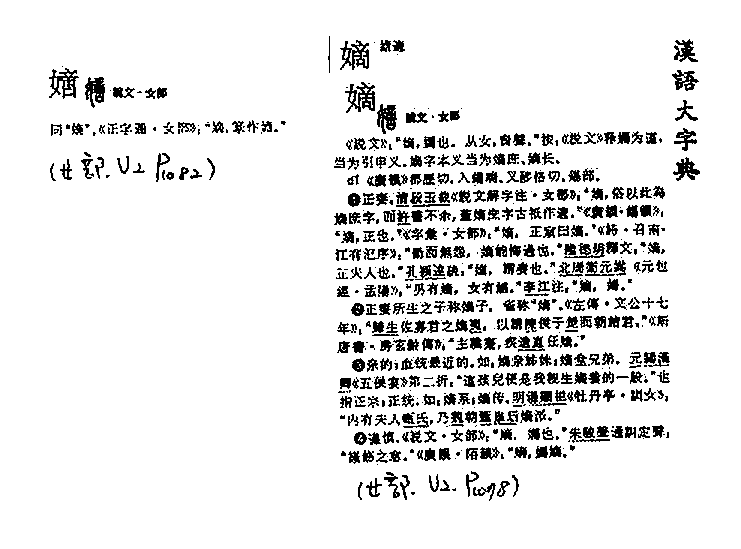 嫡
説文·女部
同“嫡”。《正字通·女部》：“嫡，篆作。”
(女部. V2 P1082)
漢語大字典
嫡
嫡
説文·女部
《説文》：“嫡，孎也。从女，啻聲。”按：《説文》釋孎为谨，
当为引申义。嫡字本义当为嫡庶、嫡长。
dí 《廣韻》都歷切，入錫端。又陟格切。錫部。
❶正妻。清段玉裁《説文解字注·女部》：“嫡，俗以此為
嫡庶字，而許書不尒，蓋嫡庶字古衹作適。”《廣韻·錫韻》：
“嫡，正也。”《字彙·女部》：“嫡，正室曰嫡。”《詩·召南·
江有汜序》：“勤而無怨，嫡能悔過也。”陸德明釋文：“嫡，
正夫人也。”孔穎達疏：“嫡，謂妻也。”北周衛元嵩《元包
經·孟陽》：“男有嫡，女有嫡。”李江注：“嫡，
❷正妻所生之子称嫡子，省称“嫡”。《左傳·文公十七
年》：“歸生佐寡君之嫡夷，以請陳侯于楚而朝諸君。”《新
唐書·房玄齡傳》：“主
❸亲的；血统最近的。如：嫡亲姊妹；嫡堂兄弟。元關漢
卿《五侯宴》第二折：“這孩兒便是我親生嫡養的一般。”也
指正宗；正统。如：嫡系；嫡传。明湯顯祖《牡丹亭·訓女》：
“内有夫人甄氏，乃魏朝甄皇后嫡派。”
❹谨慎。《説文·女部》：“嫡，孎也。”朱駿聲通訓定聲：
“謹飭之意。”《廣韻·陌韻》：“嫡，孎嫡。”
(女部. V2. P1078)